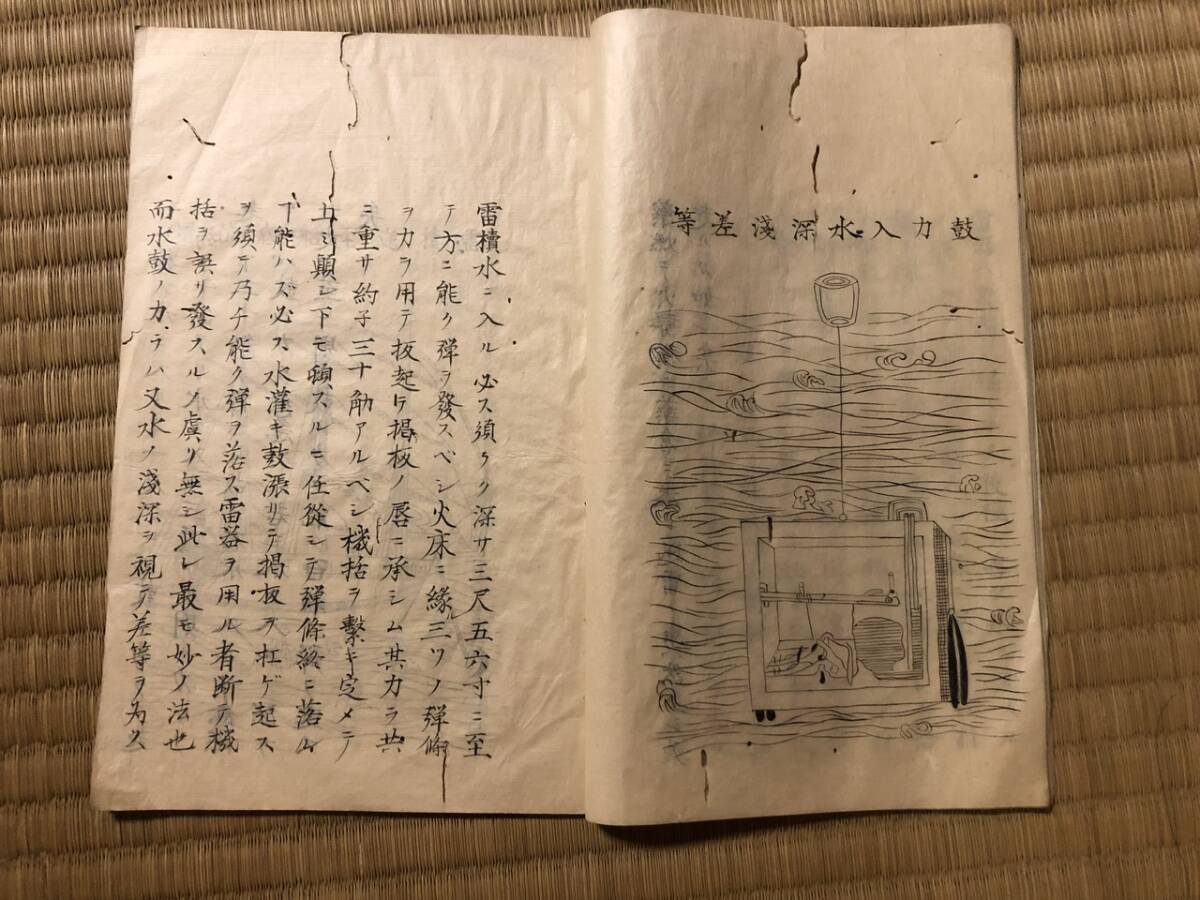 鼓力入水深淺差等
雷積水ニ入ル必ス須ラク深サ三尺五六寸ニ至
テ方ニ能ク弾ヲ發スベシ火床ニ縁ル三ツノ弾條
ヲカラ用テ扳起シ掲板ノ唇ニ承シム其力ラ共
ニ重サ約子三十觔アルベシ機括ヲ繫キ定メテ
上ミ顚シ下モ頓スルニ任從シテ弾條終ニ落ル
下能ハズ必ス水灌キ鼓漲リテ掲板ヲ扛ゲ起ス
ヲ須テ乃チ能ク弾ヲ落ス雷益ヲ用ル者断テ機
括ヲ誤リ發スルノ虞リ無シ此レ最モ妙ノ法也
而水鼓ノカラハ又水ノ淺深ヲ視テ差等ヲ為ス